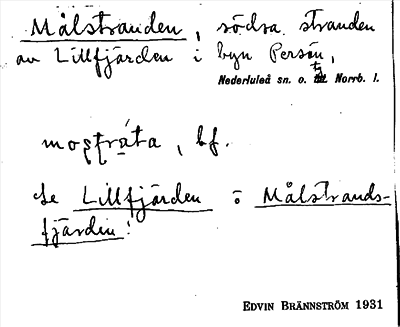 Målstranden, södra stranden
av Lillfjärden i byn Persön,
Nederluleå sn. o. Norrb. l.
bf.
Se Lillfjärden o Målstrands-
fjärden!
EDVIN BRÄNNSTRÖM 1931